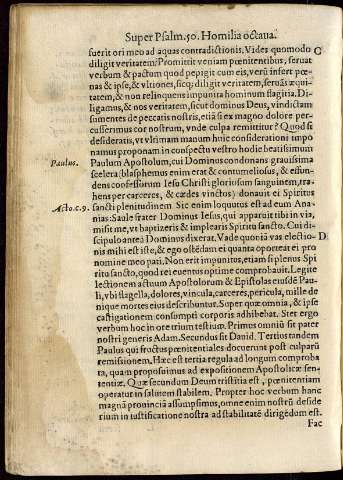 Super Psalm. 50. Homilia octaua.
fuerit ori meo ad aquas contradictionis. Vides quomodo C
diligit veritatem? Promittit veniam pœnitentibus, seruat
verbum & pactum quod pepigit cum eis, verū infert pœ-
nas & ipse, & vltiones, sicq; diligit veritatem, seruās æqui-
tatem, & non relinquens impunita hominum flagitia. Di-
ligamus, & nos veritatem, sicut dominus Deus, vindictam
sumentes de peccatis nostris, etiā si ex magno dolore per-
cusserimus cor nostrum, vnde culpa remittitur? Quod si
desideratis, vt vltimam manum huic considerationi impo
namus proponam in conspectu vestro hodie beatissimum
Paulus. Paulum Apostolum, cui Dominus condonans grauissima
scelera (blasphemus enim erat & contumeliosus, & effun-
dens confessorum Iesu Christi gloriosum sanguinem, tra-
hens per carceres, & cædes vinctos) donauit ei Spiritus
Acto. c. 9. sancti plenitudinem Sic enim loquutus est ad eum Ana-
nias: Saule frater Dominus Iesus, qui apparuit tibi in via,
misit me, vt baptizeris & implearis Spiritu sancto. Cui di-
scipulo antea Dominus dixerat. Vade quoniā vas electio- D
nis mihi est iste, & ego ostēdam ei quanta oporteat ei pro
nomine meo pati. Non erit impunitus, etiam si plenus Spi
ritu sancto, quod rei euentus optime comprobauit. Legite
lectionem actuum Apostolorum & Epistolas eiusdē Pau-
li, vbi flagella, dolores, vincula, carceres, pericula, mille de
nique mortes eius describuntur. Super quæ omnia, & ipse
castigationem consumpti corporis adhibebat. Stet ergo
verbum hoc in ore trium testium. Primus omniū sit pater
nostri generis Adam. Secundus sit Dauid. Tertius tandem
Paulus qui fructus pœnitentiales docuerunt post culparū
remissionem. Hæc est tertia regula ad longum comproba
ta, quam proposuimus ad expositionem Apostolicæ sen-
tentiæ. Quæ secundum Deum tristitia est, pœnitentiam
operatur in salutem stabilem. Propter hoc verbum hanc
magnā prouinciā assumpsimus, omne enim nostrū deside
rium in iustificatione nostra ad stabilitatē dirigēdum est.
Fac